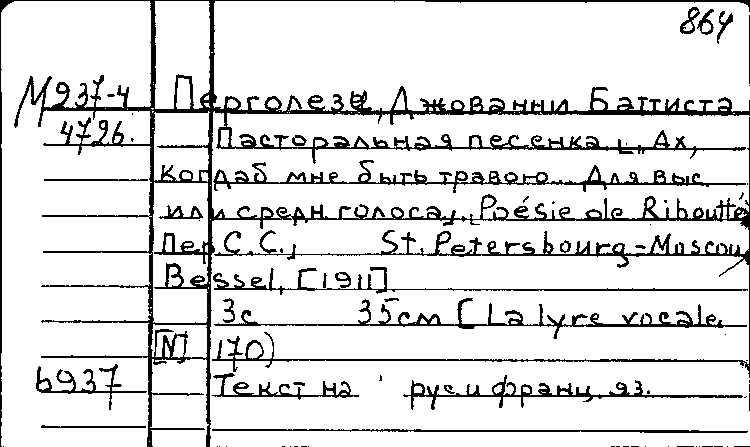 864
М937-4 Перголезе, Джованни Баттиста
4726. Пасторальная песенка „Ах,
когдаб мне быть травою... Для выс.
или средн. голоса„. Poésie de Riboutté
Пер. С.С., St. Petersbourg-Moscou,
Bessel, [1911]
3с 35см [La lyre vocale.
[N] 170)
b937 Текст на рус. и франц. яз.